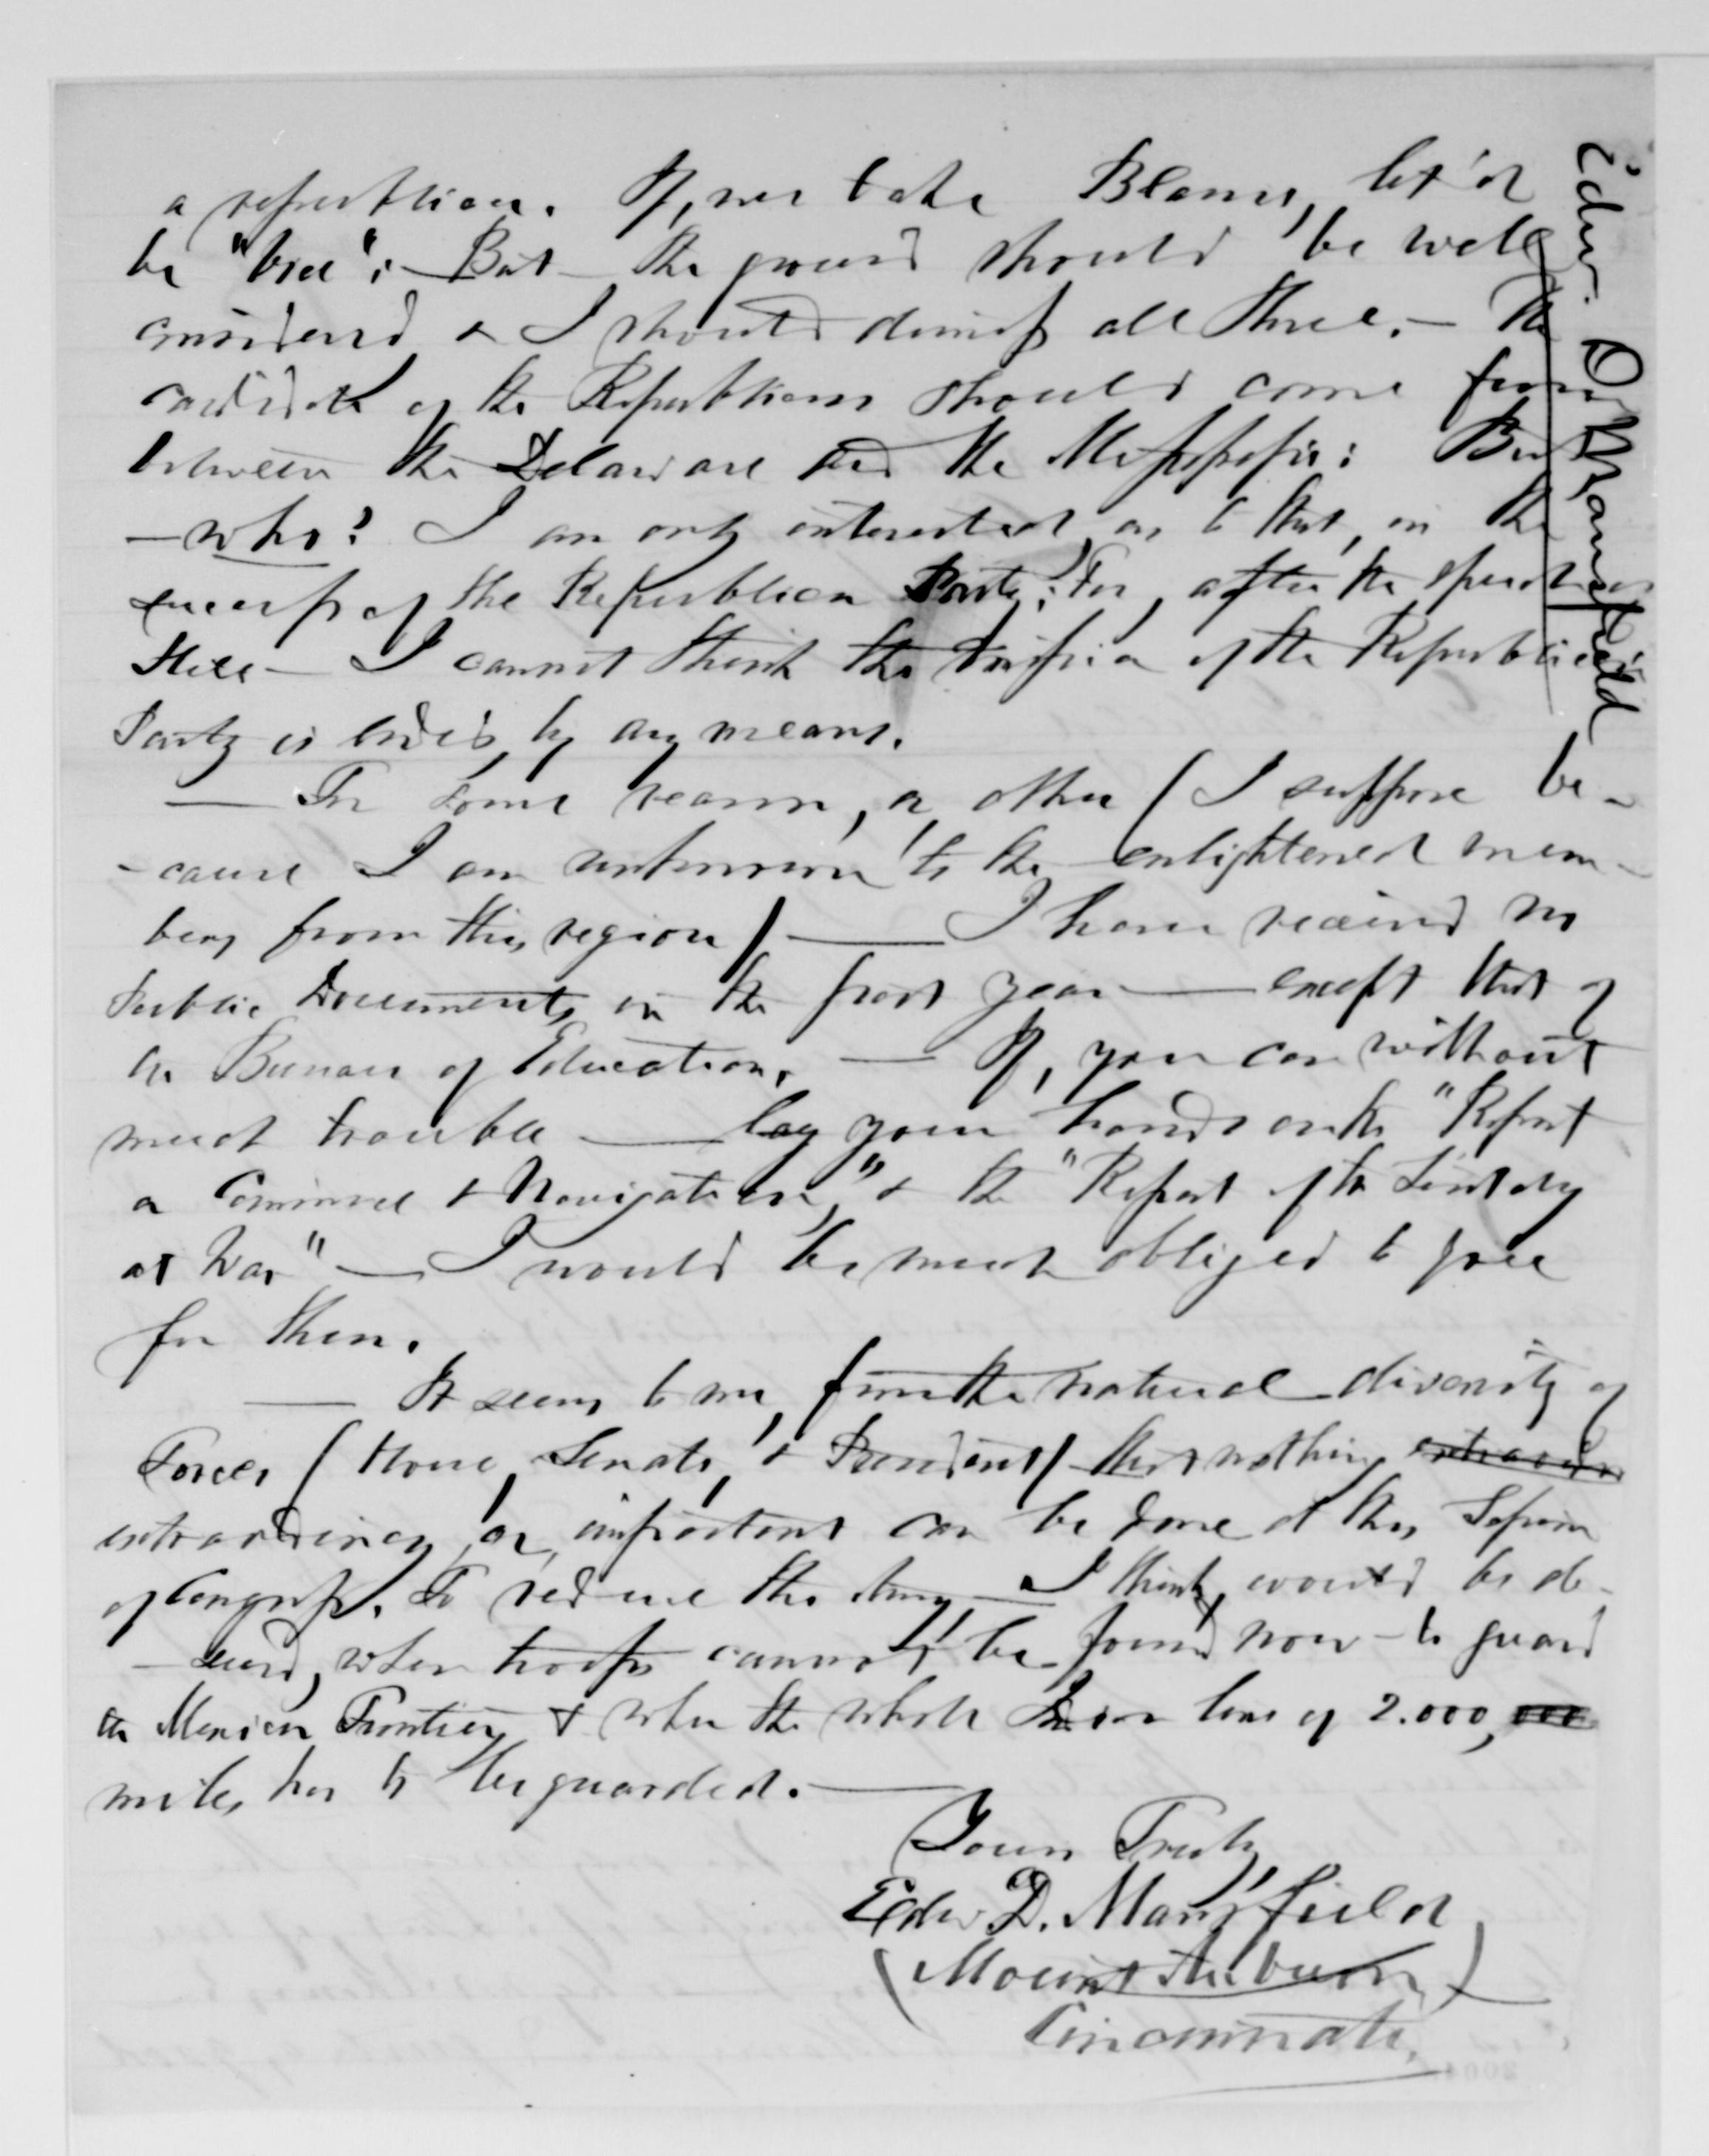 a republican. If, we take Blaine, let it
be "vice": But the ground should be well
considered & I should dismiss all three. — The
candidate of the Republicans should come from
between the Delaware and the Mississippi: But
— who? I am only interested, as to that, in the
success of the Republican Party: For, after the
I cannot think the mission of the Republican
Party is ended, by any means.
— For some reason, or other (I suppose be-
-cause I am unknown to the enlightened mem-
bers from this region) — I have received no
Public Documents, in the past year — except that of
the Bureau of Education. — If, you can without
much trouble — lay your hands on the "Report
on Commerce & Navigation," & the "Report of the Secretary
of War" — I would be much obliged to you
for them.
— It seems to me, from the natural diversity of
Forces (House, Senate, & President) that nothing extraordin
extraordinary, or, important can be done at this Session
of Congress. To reduce the Army — I think, would be ab-
-surd, when troops cannot be found now — to guard
the Mexican Frontier, & when the whole Indian line of 2.000, 000
miles has to be guarded. —
Yours Truly,
Edw D. Mansfield
(Mount Auburn)
Cincinnati.
Edw. D. Mansfield